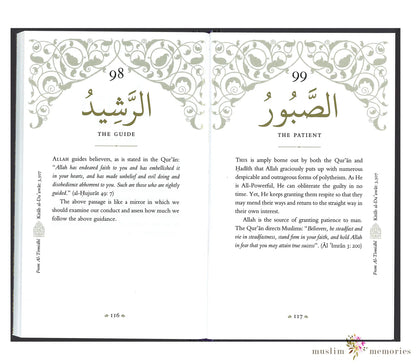 98
الرَّشِيدُ
THE GUIDE
ALLAH guides believers, as is stated in the Qurʾān:
"Allah has endeared faith to you and has embellished it in
your hearts, and has made unbelief and evil doing and
disobedience abhorrent to you. Such are those who are rightly
guided." (al-Ḥujurāt 49: 7)
The above passage is like a mirror in which we
should examine our conduct and assess how much we
follow the above guidance.
From Al-Tirmidhī Kitāb al-Daʿwāt: 3,507
116
99
الصَّبُورُ
THE PATIENT
THIS is amply borne out by both the Qurʾān and
Ḥadīth that Allah graciously puts up with numerous
despicable and outrageous forms of polytheism. As He
is All-Powerful, He can obliterate the guilty in no
time. Yet, He keeps granting them respite so that they
may mend their ways and return to the straight way in
their own interest.
Allah is the source of granting patience to man.
The Qurʾān directs Muslims: "Believers, be steadfast and
vie in steadfastness, stand firm in your faith, and hold Allah
in fear that you may attain true success". (Āl ʿImrān 3: 200)
From Al-Tirmidhī Kitāb al-Daʿwāt: 3,507
117
muslim memories